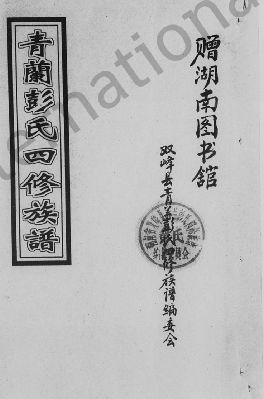 赠湖南图书舘
双峰县青兰彭氏四修族譜编委会
青蘭彭氏四修族譜